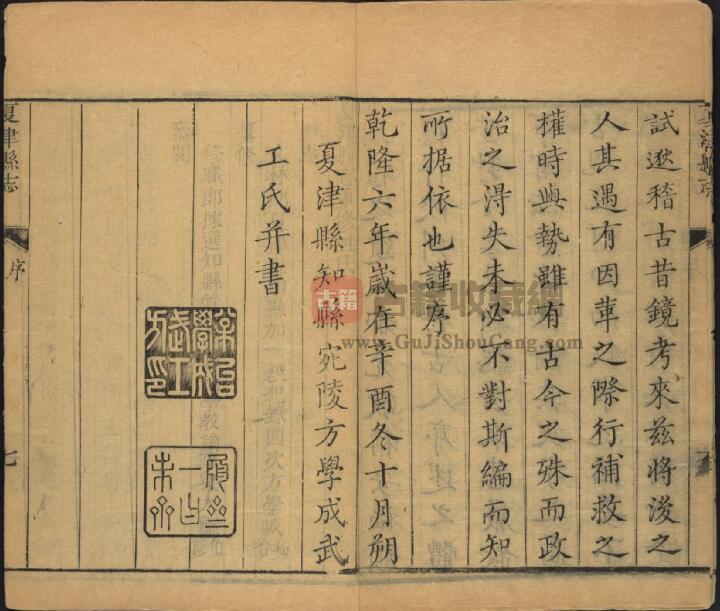 試逖稽古昔鏡考來兹將浚之
人其遇有因革之際行補救之
權時與勢雖有古今之殊而政
治之淂失未必不對斯編而知
所据依也謹序
乾隆六年歲在辛酉冬十月朔
夏津縣知縣宛陵方學成武
工氏并書
夏津縣志
序
七
古籍
古籍收藏網
www.GuJiShouCang.com